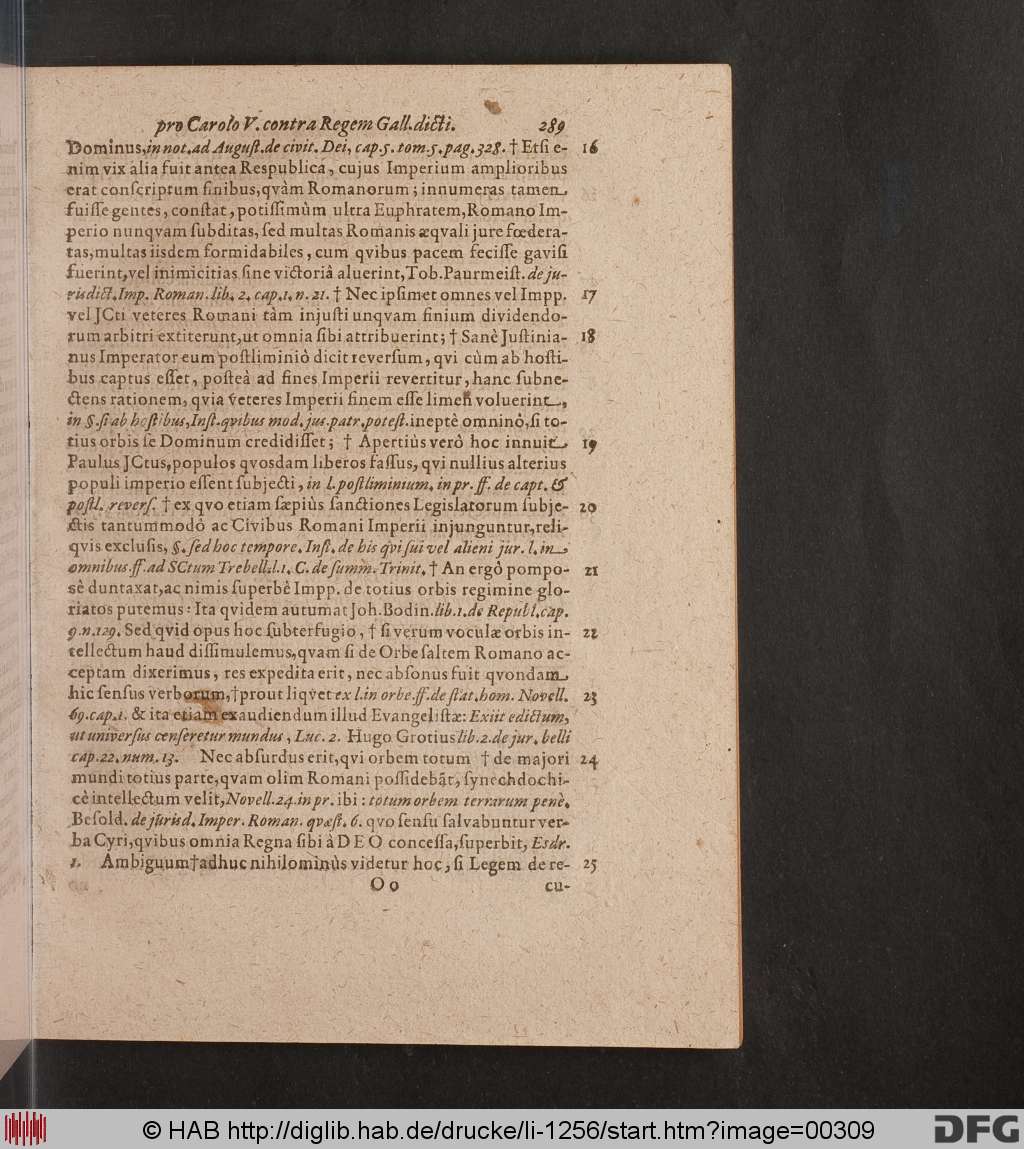 pro Carolo V. contra Regem Gall. dicti. 289
Dominus, in not. ad August. de civit. Dei, cap. 5. tom. 5. pag. 328. † Etsi e- 16
nim vix alia fuit antea Respublica, cujus Imperium amplioribus
erat conscriptum finibus, qvàm Romanorum; innumeras tamen
fuisse gentes, constat, potissimùm ultra Euphratem, Romano Im-
perio nunqvam subditas, sed multas Romanis æqvali jure fœdera-
tas, multas iisdem formidabiles, cum qvibus pacem fecisse gavisi
fuerint, vel inimicitias sine victoriâ aluerint, Tob. Paurmeist. de ju-
risdict. Imp. Roman. lib. 2. cap. 1. n. 21. † Nec ipsimet omnes vel Impp. 17
vel JCti veteres Romani tàm injusti unqvam finium dividendo-
rum arbitri extiterunt, ut omnia sibi attribuerint; † Sanè Justinia- 18
nus Imperator eum postliminiô dicit reversum, qvi cùm ab hosti-
bus captus esset, posteà ad fines Imperii revertitur, hanc subne-
ctens rationem, qvia veteres Imperii finem esse limen voluerint,
in §. si ab hostibus, Inst. qvibus mod. jus. patr. potest. ineptè omninò, si to-
tius orbis se Dominum credidisset; † Apertiùs verò hoc innuit 19
Paulus JCtus, populos qvosdam liberos fassus, qvi nullius alterius
populi imperio essent subjecti, in l. postliminium. in pr. ff. de capt. &
postl. revers. † ex qvo etiam sæpiùs sanctiones Legislatorum subje- 20
ctis tantummodò ac Civibus Romani Imperii injunguntur, reli-
qvis exclusis, §. sed hoc tempore. Inst. de his qvi sui vel alieni jur. l. in
omnibus. ff. ad SCtum Trebell. l. 1. C. de summ. Trinit. † An ergò pompo- 21
sè duntaxat, ac nimis superbè Impp. de totius orbis regimine glo-
riatos putemus: Ita qvidem autumat Joh. Bodin. lib. 1. de Republ. cap.
9. n. 129. Sed qvid opus hoc subterfugio, † si verum voculæ orbis in- 22
tellectum haud dissimulemus, qvam si de Orbe saltem Romano ac-
ceptam dixerimus, res expedita erit, nec absonus fuit qvondam
hic sensus verborum, † prout liqvet ex l. in orbe. ff. de stat. hom. Novell. 23
69. cap. 1. & ita etiam exaudiendum illud Evangelistæ: Exiit edictum,
ut universus censeretur mundus, Luc. 2. Hugo Grotius lib. 2. de jur. belli
cap. 22. num. 13. Nec absurdus erit, qvi orbem totum † de majori 24
mundi totius parte, qvam olim Romani possidebāt, synechdochi-
cè intellectum velit, Novell. 24. in pr. ibi: totum orbem terrarum penè.
Besold. de jurisd. Imper. Roman. qvæst. 6. qvo sensu salvabuntur ver-
ba Cyri, qvibus omnia Regna sibi à DEO concessa, superbit, Esdr.
1. Ambiguum † adhuc nihilominùs videtur hoc, si Legem de re- 25
Oo cu-
© HAB http://diglib.hab.de/drucke/li-1256/start.htm?image=00309
DFG